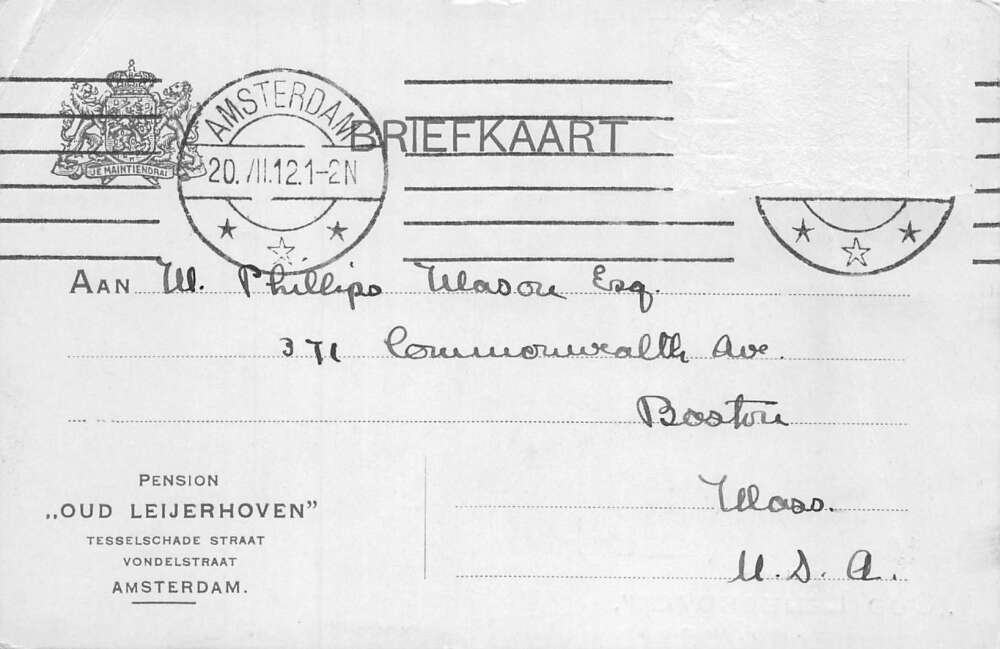 JE MAINTIENDRAI
AMSTERDAM
20.VII.12.1-2N
BRIEFKAART
AAN M. Phillips Mason Esq.
371 Commonwealth Ave.
Boston
Mass.
U.S.A.
PENSION
„OUD LEIJERHOVEN”
TESSELSCHADE STRAAT
VONDELSTRAAT
AMSTERDAM.